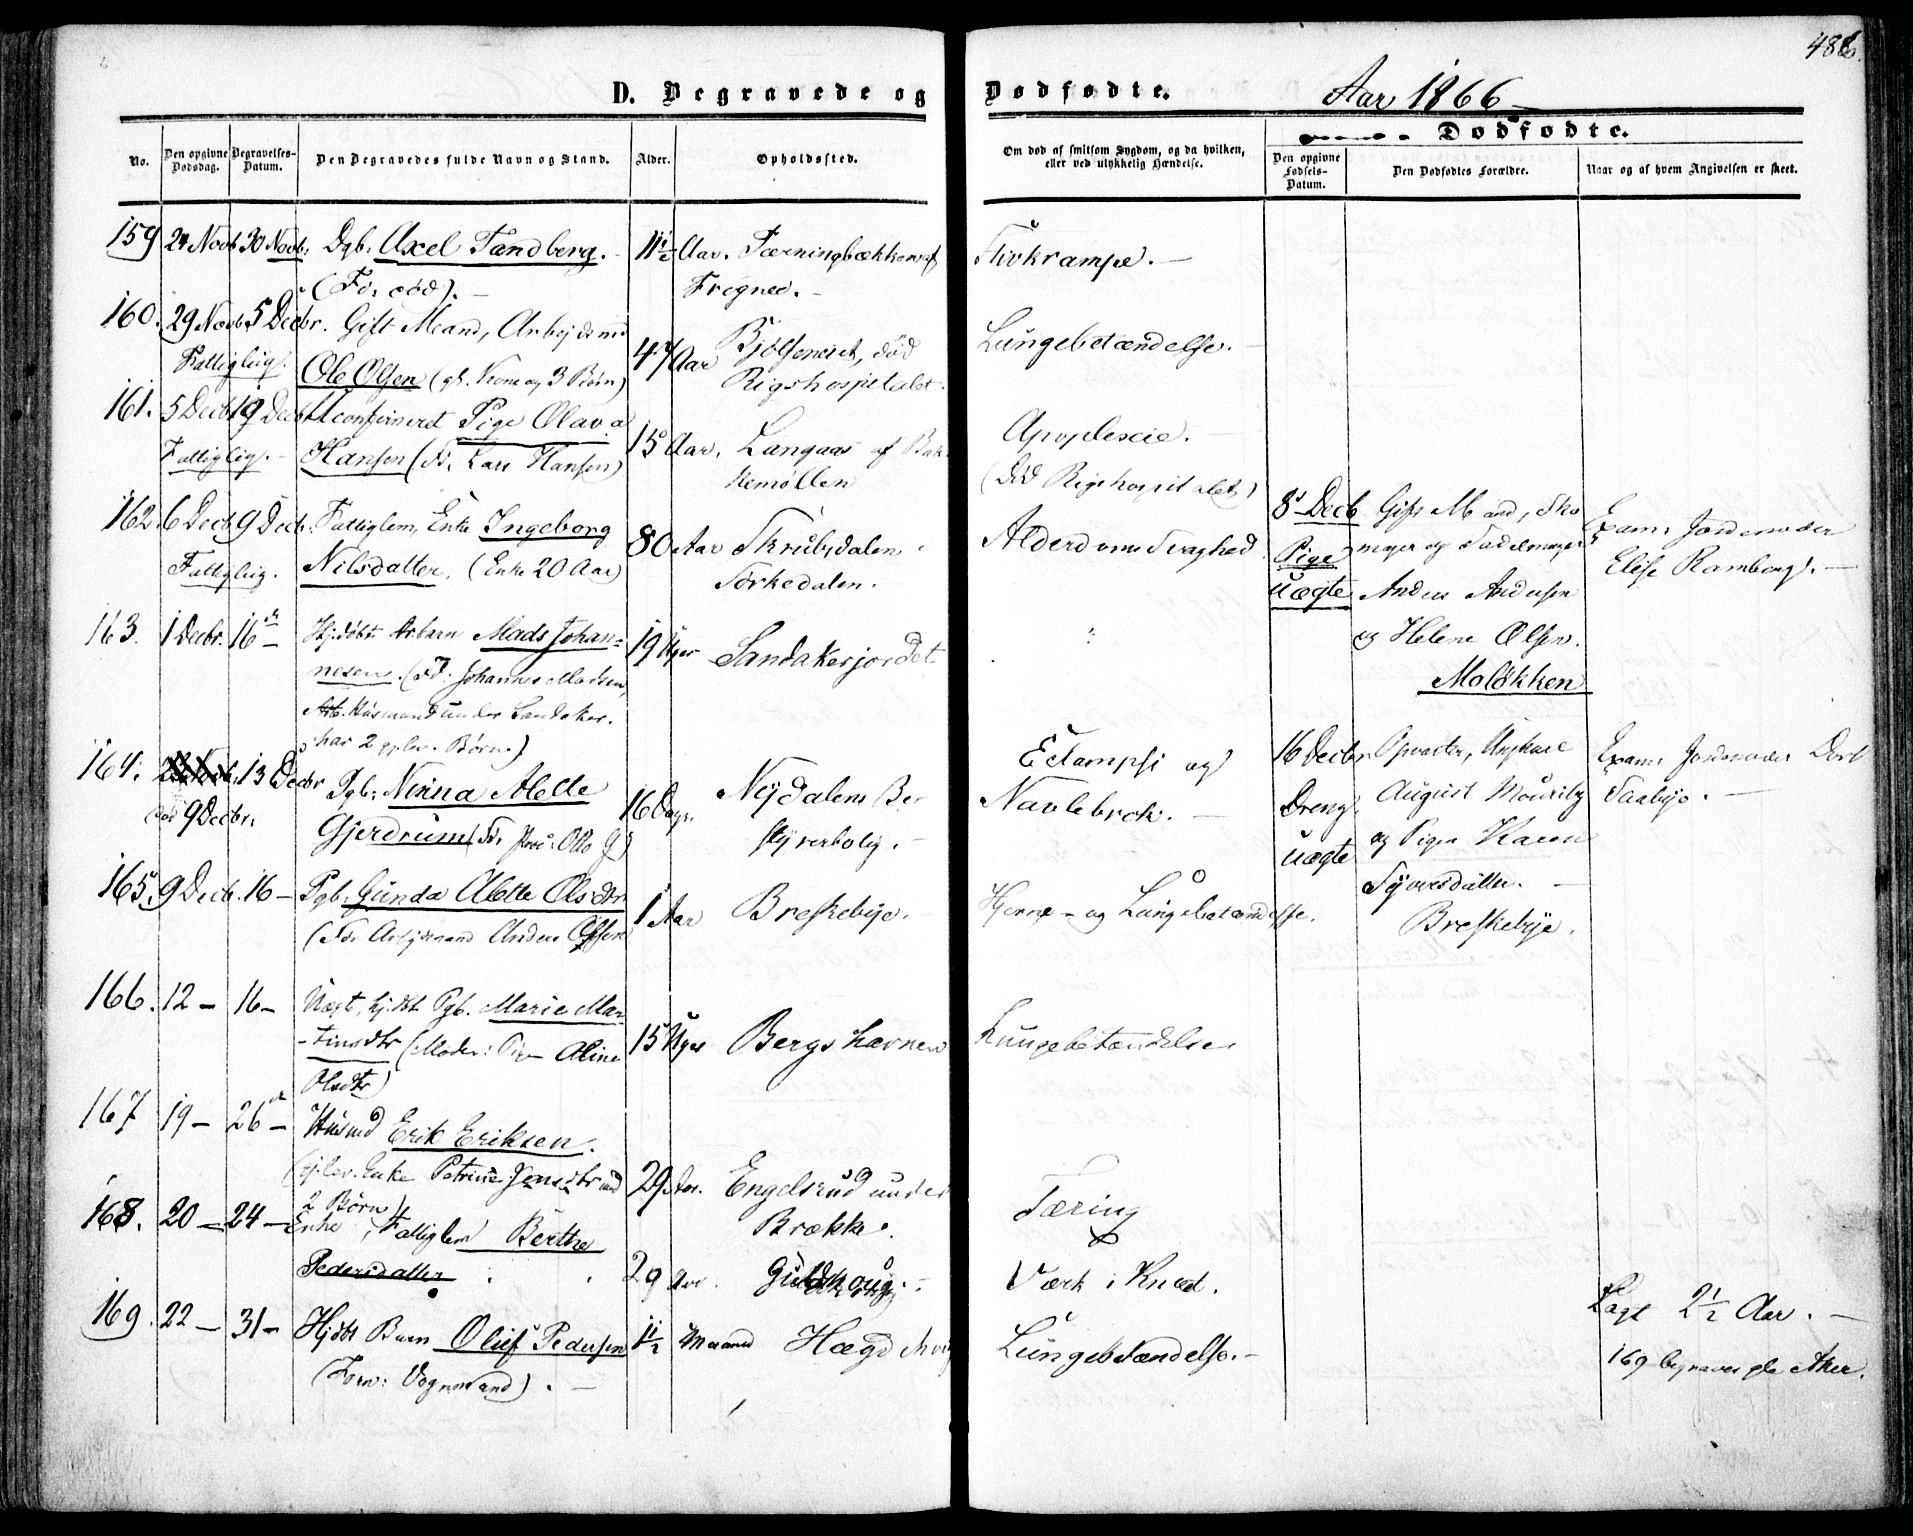 486.
D. Begravede og Dødfødte. Aar 1866
Dødfødte.
No.
Den opgivne Dødsdag.
Begravelses-Datum.
Den Begravedes fulde Navn og Stand.
Alder.
Opholdssted.
Om død af smitsom Sygdom, og da hvilken,
eller ved ulykkelig Hændelse.
Den opgivne Fødsels-Datum.
Den Dødfødtes Forældre.
Naar og af hvem Angivelsen er skeet.
159 24 Novb 30 Novb. Dgb. Axel Tandberg. 11½ Aar. Tærningbækken af
(Fr. død). Frogner.
160. 29 Novb 5 Decbr. Gift Mand, Arbejdsmd
Fattiglig. Ole Olsen (gl. Kone og 3 Børn) 47 Aar Bjølseneiet, død
Rigshospitalet. Lungebetændelse.
161. 5 Decb 19 Decb Uconfirmeret Pige Olava
Fattiglig. Hansen (Fr. Lars Hansen) 15 Aar. Langaas af Bak-
kemøllen
Apoplexie.
(død Rigshospitalet)
162. 6 Decb 9 Decb. Fattiglem, Enke Ingeborg
Fattiglig. Nilsdatter. (Enke 20 Aar) 80 Aar Skrubsdalen i
Sørkedalen. Alderdomssvaghed
8 Decb Gift Mand, Sko
Pige mager og Sadelmager
uægte Anders Andersen
og Helene Olsen.
Moløkken
Exam. Jordemoder
Elise Ramborg.
163. 1 Decbr. 16 Hj.døbt Arbarn Mads Johan-
nesen. (Fd. Johannes Madsen,
Husmand under Sandaker.
har 2 gjlev. Børn.) 19 Uger Sandakerjordet
164. 13 Decbr Pgb. Ninna Alette
død 9 Decbr. Gjerdrum (Fr. Otto G) 16 Dage. Nydalens Be
styrerbolig.
Eclampsi og
Navlebrok.
16 Decbr Opvarter, Ungkarl
Dreng August Mouritz
uægte og Pigen Karen
Syversdatter.
Breskebye.
Exam. Jordemoder Dort
Taabyo.
165. 9 Decb. 16 Pgb. Gunda Alette Olsdtr
(Fr. Arbejdsmand Anders Olsen 1 Aar Breskebye. Hjerne- og Lungebetændelse.
166. 12 16 Uægt, hj.dbt Pgb. Marie Mar-
tinsdtr (Moder: Pige Aline
Olsdtr) 15 Uger Bergshavnen Lungebetændelse
167 19 26 Husmd Erik Eriksen.
(gjlev. Enke Petrine Jensdtr med
2 Børn) 29 Aar. Engelsrud under
Brække. Tæring
168. 20 24 Enke, Fattiglem Berthe
Pedersdatter 29 Aar. Guldhoug. Værk i Knæd.
Lagt 2½ Aar.
169. 22 31 Hjdbt Barn Oluf Pedersen 1½ Maaned Hægdehoug
(Forn: Vognmand). Lungebetændelse.
169 begraves gle Aker.